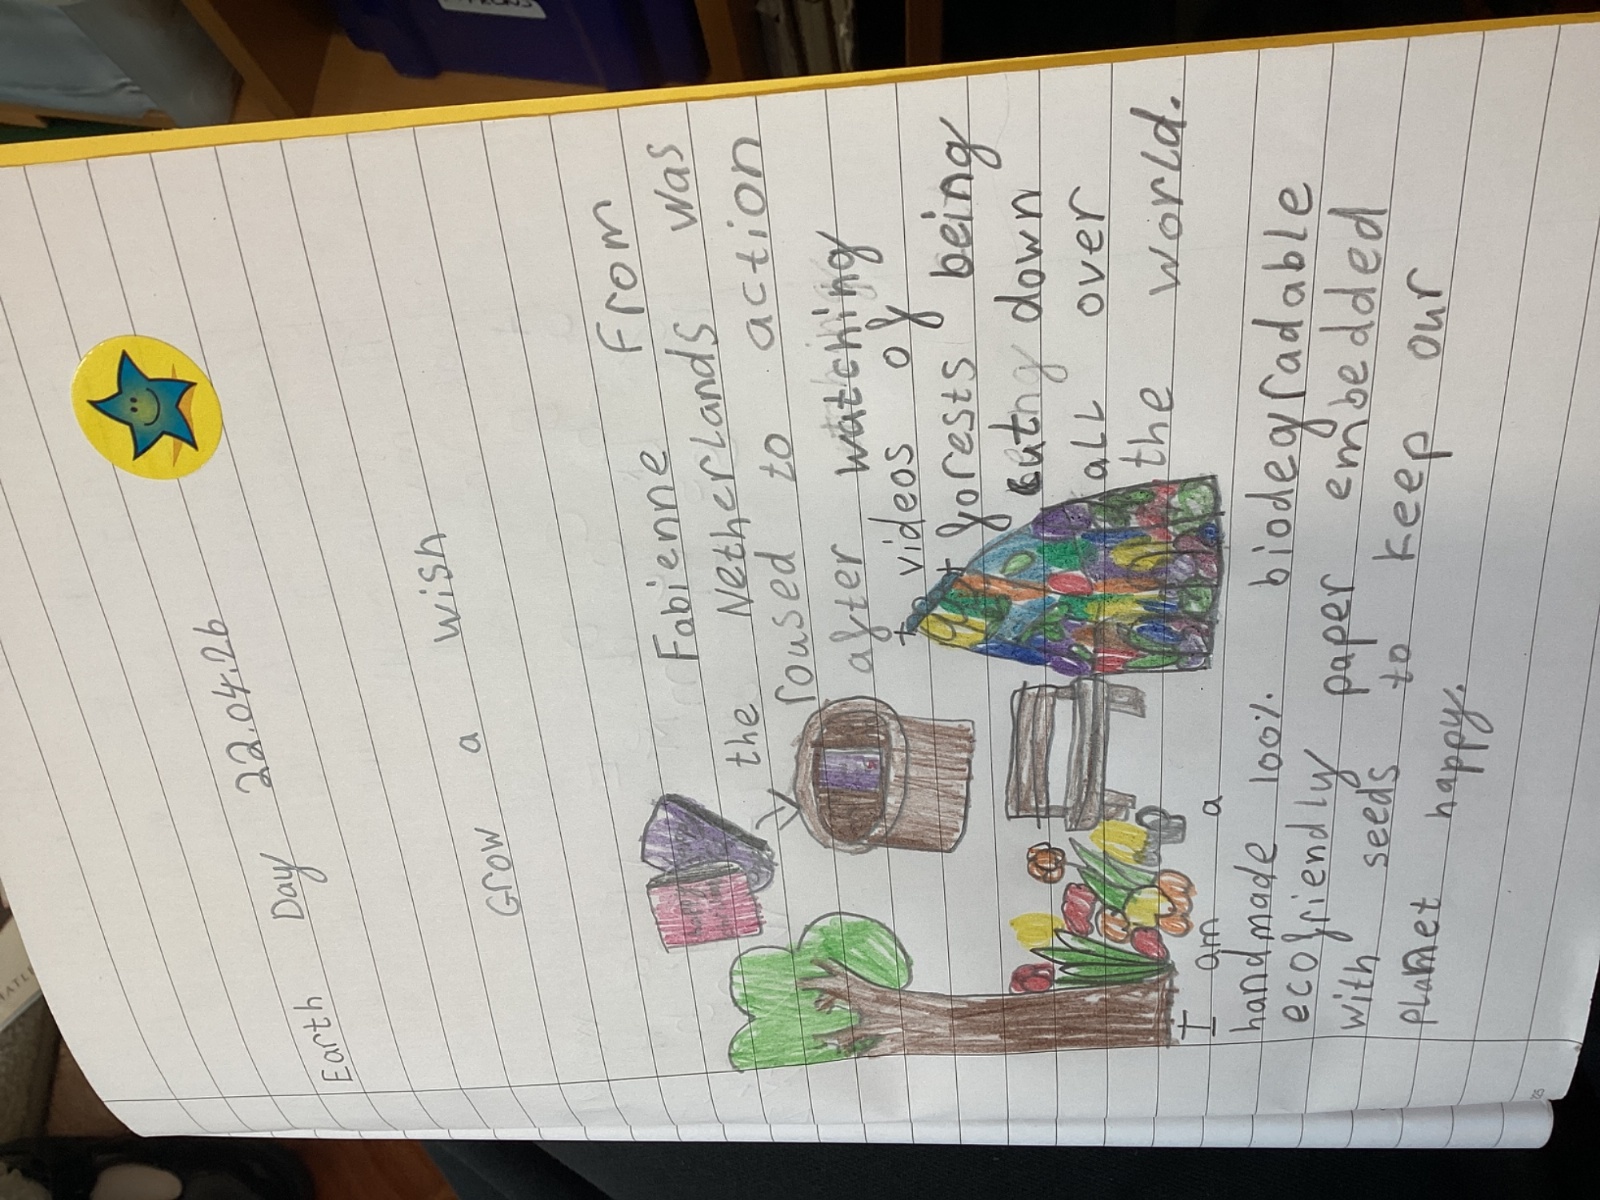 Earth Day 22.04.26
Grow a wish
From
Fabienne
the Netherlands was
roused to action
after watching
videos of
forests being
cutng down
all over
the world.
I am a
handmade 100% biodegradable
ecofriendly paper embedded
with seeds to keep our
planet happy.